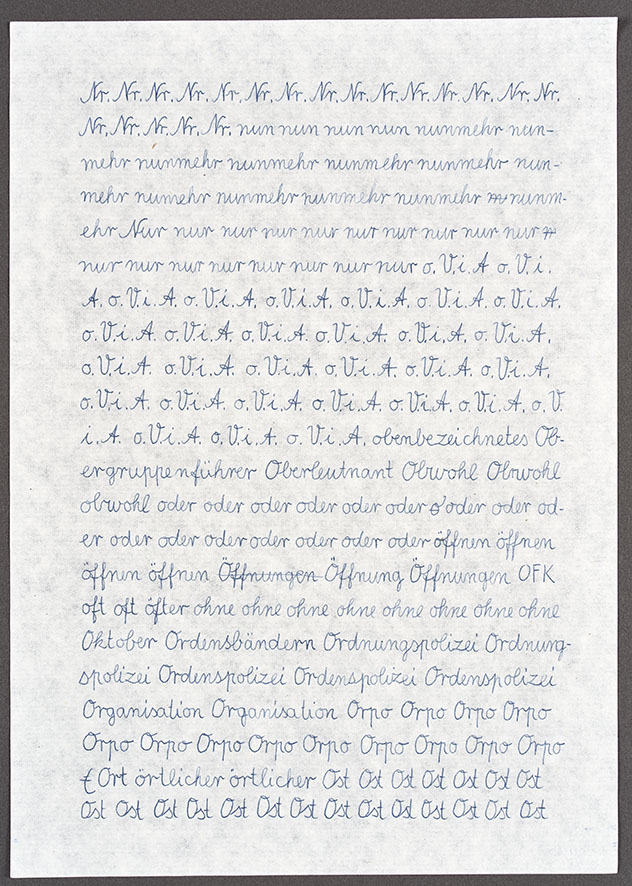 Nr. Nr. Nr. Nr. Nr. Nr. Nr. Nr. Nr. Nr. Nr. Nr. Nr. Nr. Nr.
Nr. Nr. Nr. Nr. Nr. nun nun nun nun nunmehr nun-
mehr nunmehr nunmehr nunmehr nunmehr nun-
mehr nunmehr nunmehr nunmehr nunmehr nunm-
ehr Nur nur nur nur nur nur nur nur nur nur
nur nur nur nur nur nur nur nur nur o.V.i.A o.V.i.
A. o.V.i.A. o.V.i.A. o.V.i.A. o.V.i.A. o.V.i.A. o.V.i.A.
o.V.i.A. o.V.i.A. o.V.i.A. o.V.i.A. o.V.i.A. o.V.i.A.
o.V.i.A. o.V.i.A. o.V.i.A. o.V.i.A. o.V.i.A. o.V.i.A.
o.V.i.A. o.V.i.A. o.V.i.A. o.V.i.A. o.V.i.A. o.V.i.A. o.V.
i.A. o.V.i.A. o.V.i.A. o.V.i.A. obenbezeichnetes Ob-
ergruppenführer Oberleutnant Obwohl Obwohl
obwohl oder oder oder oder oder oder oder oder od-
er oder oder oder oder oder oder oder öffnen öffnen
öffnen öffnen Öffnungen Öffnung Öffnungen OFK
oft oft öfter ohne ohne ohne ohne ohne ohne ohne ohne
Oktober Ordensbändern Ordnungspolizei Ordnung-
spolizei Ordenspolizei Ordenspolizei Ordenspolizei
Organisation Organisation Orpo Orpo Orpo Orpo
Orpo Orpo Orpo Orpo Orpo Orpo Orpo Orpo Orpo
Ort örtlicher örtlicher Ost Ost Ost Ost Ost Ost Ost
Ost Ost Ost Ost Ost Ost Ost Ost Ost Ost Ost Ost Ost Ost